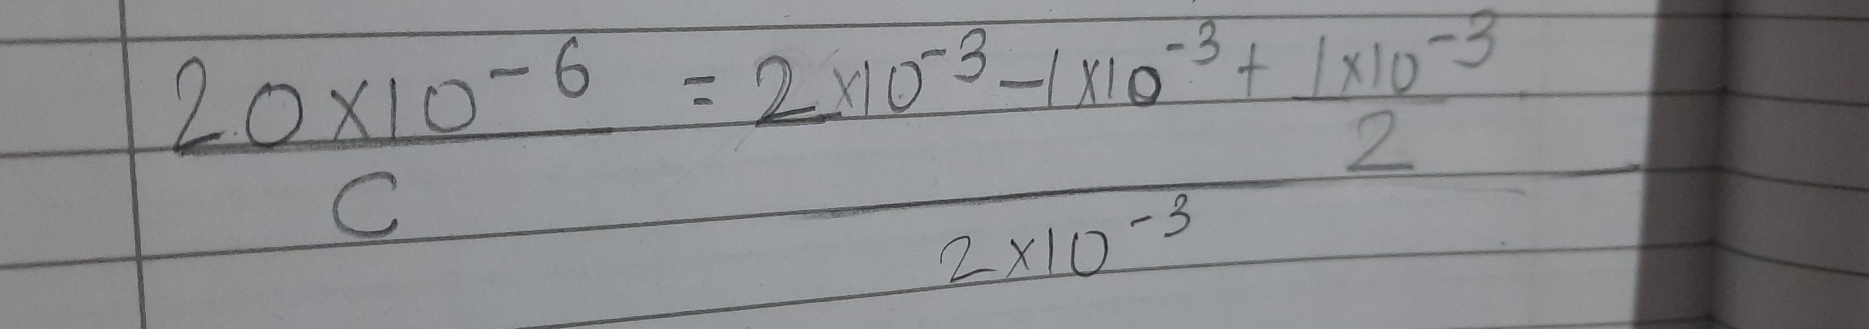 20×10⁻⁶ = 2×10⁻³ – 1×10⁻³ + 1×10⁻³
C 2
2×10⁻³